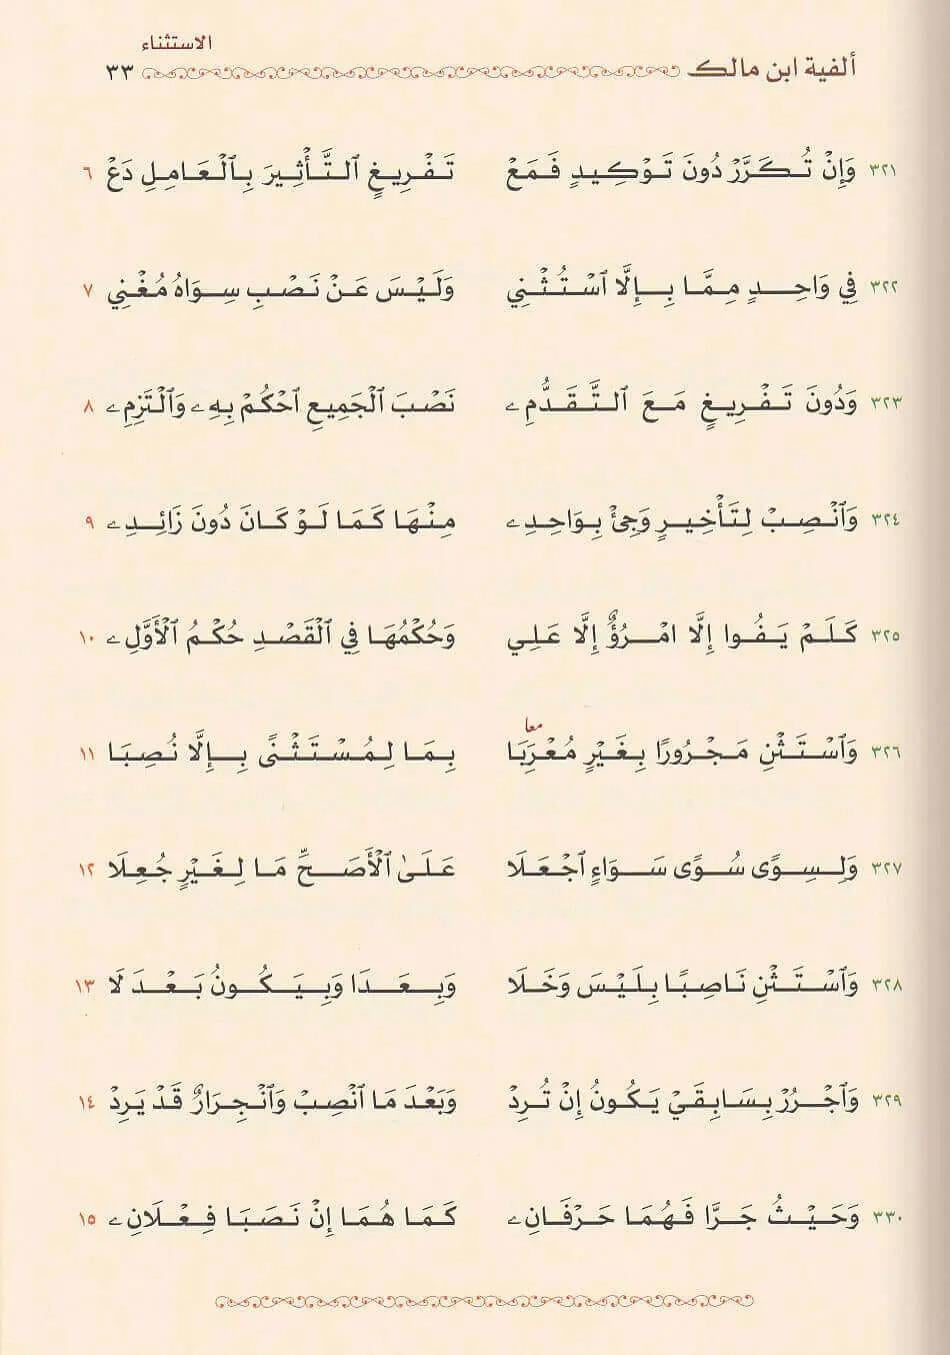 الاستثناء
ألفية ابن مالك ٣٣
٣٢١ وَإِنْ تُكَرَّرْ دُونَ تَوْكِيدٍ فَمَعْ تَفْرِيغٍ ٱلتَّأْثِيرَ بِٱلْعَامِلِ دَعْ ٦
٣٢٢ فِي وَاحِدٍ مِمَّا بِإِلَّا ٱسْتُثْنِي وَلَيْسَ عَنْ نَصْبِ سِوَاهُ مُغْنِي ٧
٣٢٣ وَدُونَ تَفْرِيغٍ مَعَ ٱلتَّقَدُّمِے نَصْبَ ٱلْجَمِيعِ ٱحْكُمْ بِهِے وَٱلْتَزِمِے ٨
٣٢٤ وَٱنْصِبْ لِتَأْخِيرٍ وَجِئْ بِوَاحِدِے مِنْهَا كَمَا لَوْ كَانَ دُونَ زَائِدِے ٩
٣٢٥ كَلَمْ يَفُوا إِلَّا امْرُؤٌ إِلَّا عَلِي وَحُكْمُهَا فِي ٱلْقَصْدِ حُكْمُ ٱلْأَوَّلِے ١٠
معا
٣٢٦ وَٱسْتَثْنِ مَجْرُورًا بِغَيْرٍ مُعْرَِبَا بِمَا لِمُسْتَثْنًى بِإِلَّا نُصِبَا ١١
٣٢٧ وَلِسِوًى سُوًى سَوَاءٍ ٱجْعَلَا عَلَىٰ ٱلْأَصَحِّ مَا لِغَيْرٍ جُعِلَا ١٢
٣٢٨ وَٱسْتَثْنِ نَاصِبًا بِلَيْسَ وَخَلَا وَبِعَدَا وَبِيَكُونُ بَعْدَ لَا ١٣
٣٢٩ وَٱجْرُرْ بِسَابِقَيْ يَكُونُ إِنْ تُرِدْ وَبَعْدَ مَا ٱنْصِبْ وَٱنْجِرَارٌ قَدْ يَرِدْ ١٤
٣٣٠ وَحَيْثُ جَرَّا فَهُمَا حَرْفَانِے كَمَا هُمَا إِنْ نَصَبَا فِعْلَانِے ١٥